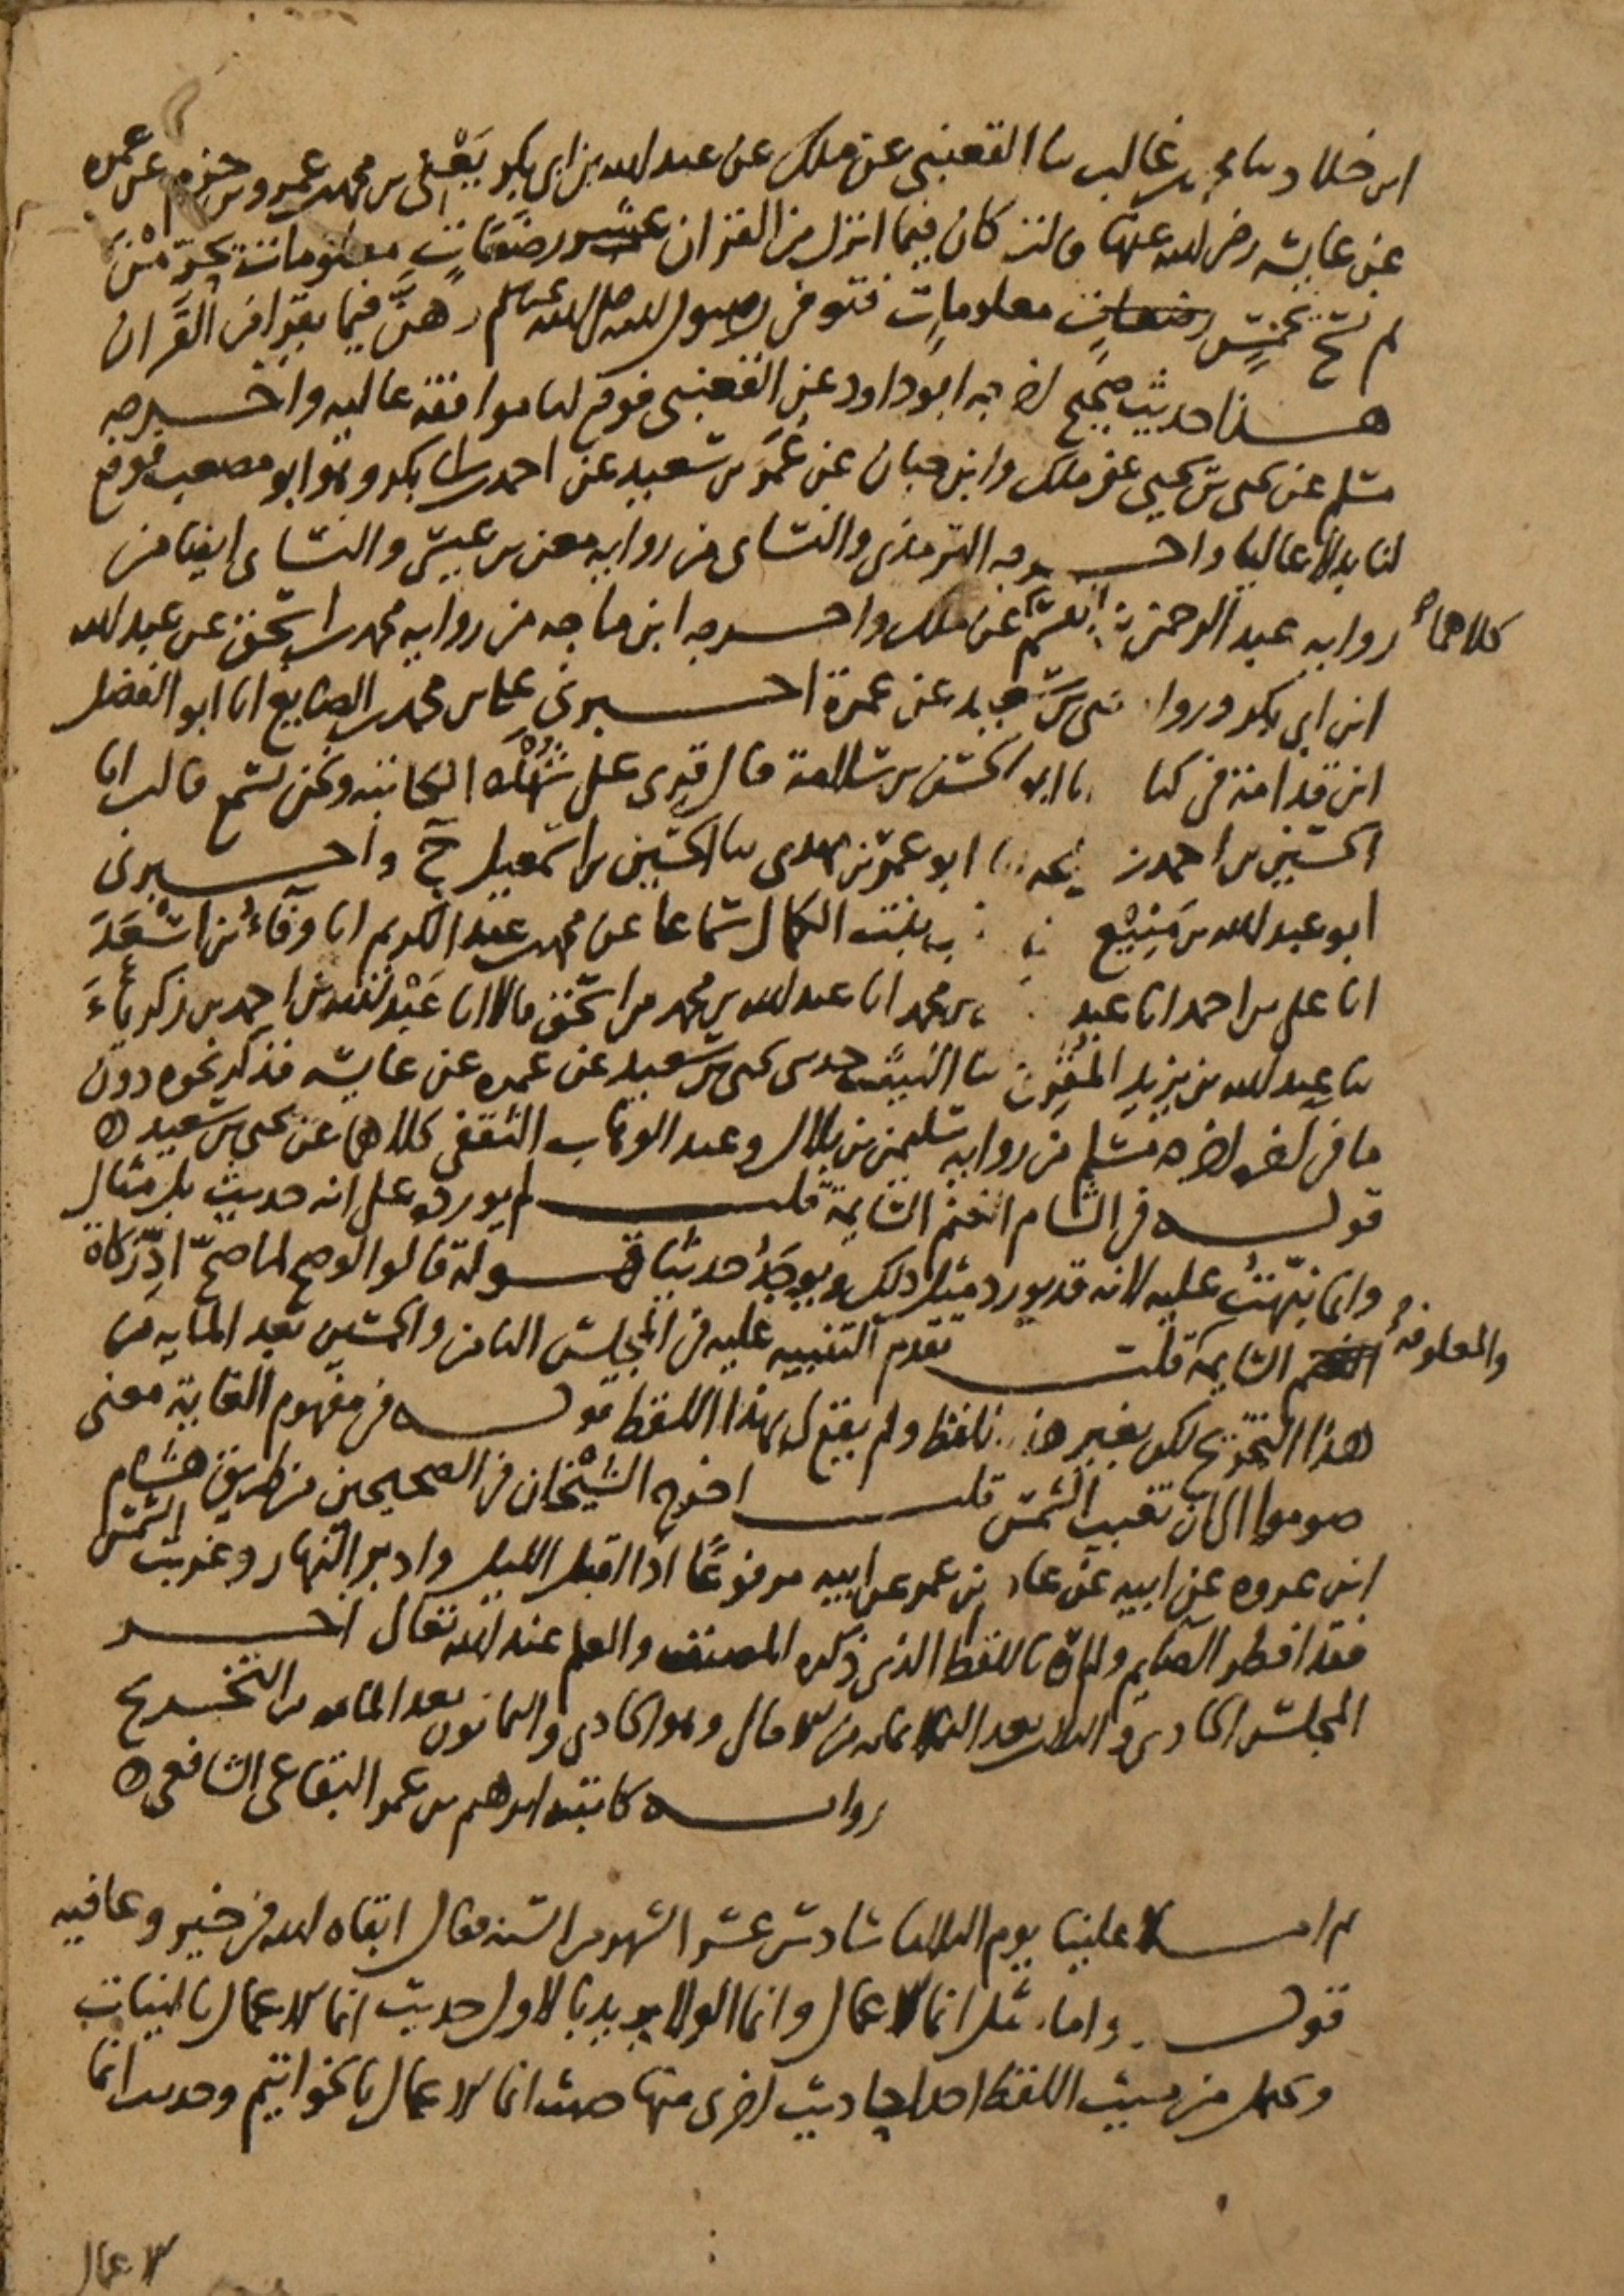 ابن خلاد ثنا محمد بن غالب ثنا القعنبي عن ملك عن عبد الله بن ابي بكر يعني بن محمد بن عمرو بن حزم عن عمره
عن عايشه رضي الله عنها قالت كان فيما انزل من القران عشر رضعات معلومات يحرمن
ثم نسخ بخمس رضعات معلومات فتوفي رسول الله صلى الله عليه وسلم وهن فيما يقرا من القران
هذا حديث صحيح اخرجه ابو داود عن القعنبي فوقع لنا موافقة عاليه واخرجه
مسلم عن يحيى بن يحيى عن ملك وابن حبان عن عمر بن سعيد عن احمد بن ابي بكر وهو ابو مصعب فوقع
لنا بدلا عاليا واخرجه الترمذي والنساي من روايه معن بن عيسى والنساي ايضا من
روايه عبد الرحمن بن القسم كلاهما عن ملك واخرجه ابن ماجه من روايه محمد بن اسحق عن عبد الله
ابن ابي بكر ورواه يحيى بن سعيد عن عمرة اخبرني عباس محمد بن الصايغ انا ابو الفضل
ابن قدامة في كتا انا ابو الحسن بن سلامة قال قري على شهدة الكاتبه ونحن نسمع قالت انا
الحسين بن احمد بن ابو عمر بن مهدي ثنا الحسين بن اسمعيل ح واخبرني
ابو عبد الله بن منيع بنت الكمال سماعا عن محمد بن عبد الكريم انا وفاء بن اسعد
انا علي بن احمد انا عبد بن محمد انا عبد الله بن محمد بن اسحق قالا انا عبد الله بن احمد بن زكرياء
ثنا عبد الله بن يزيد المقري ثنا الليث حدثني يحيى بن سعيد عن عمره عن عايشه فذكر نحوه دون
ما في اخره اخرجه مسلم من روايه سليمن بن بلال وعبد الوهاب الثقفي كلاهما عن يحيى بن سعيد ه
قوله في الغنم السايمة قلت لم يورده على انه حديث بل مثال
وانما نبهت عليه لانه قد يورد مثل ذلك ويوجد حديثا قوله قالوا لو صح لما صح اد زكاة
السايمة والمعلوفة قلت تقدم التنبيه عليه في المجلس الثامن والخمسين بعد المايه من
هذا التخريج لكن بغير هذا اللفظ ولم يقع لي بهذا اللفظ قوله في مفهوم الغاية معنى
صوموا الى ان تغيب الشمس قلت اخرج الشيخان في الصحيحين من طريق هشام
ابن عروه عن ابيه عن عاصم بن عمر عن ابيه مرفوعا اذا اقبل الليل وادبر النهار وغربت الشمس
فقد افطر الصايم ولم اره باللفظ الذي ذكره المصنف والعلم عند الله تعالى اخر
المجلس الحادي والثلاثين بعد الثلاثمائه من الامالي وهو الحادي والثمانون بعد المائه من التخريج
روايه كاتبه ابرهيم بن عمر البقاعي الشافعي ه
ثم املا علينا يوم الثلاثا سادس عشر الشهر من السنه فقال ابقاه الله في خير وعافيه
قوله واما مثل انما الاعمال وانما الولا يريد بالاول حديث انما الاعمال بالنيات
ويحمل من حيث اللفظ احد احاديث اخرى منها حديث انما الاعمال بالخواتيم وحديث انما
الاعمال